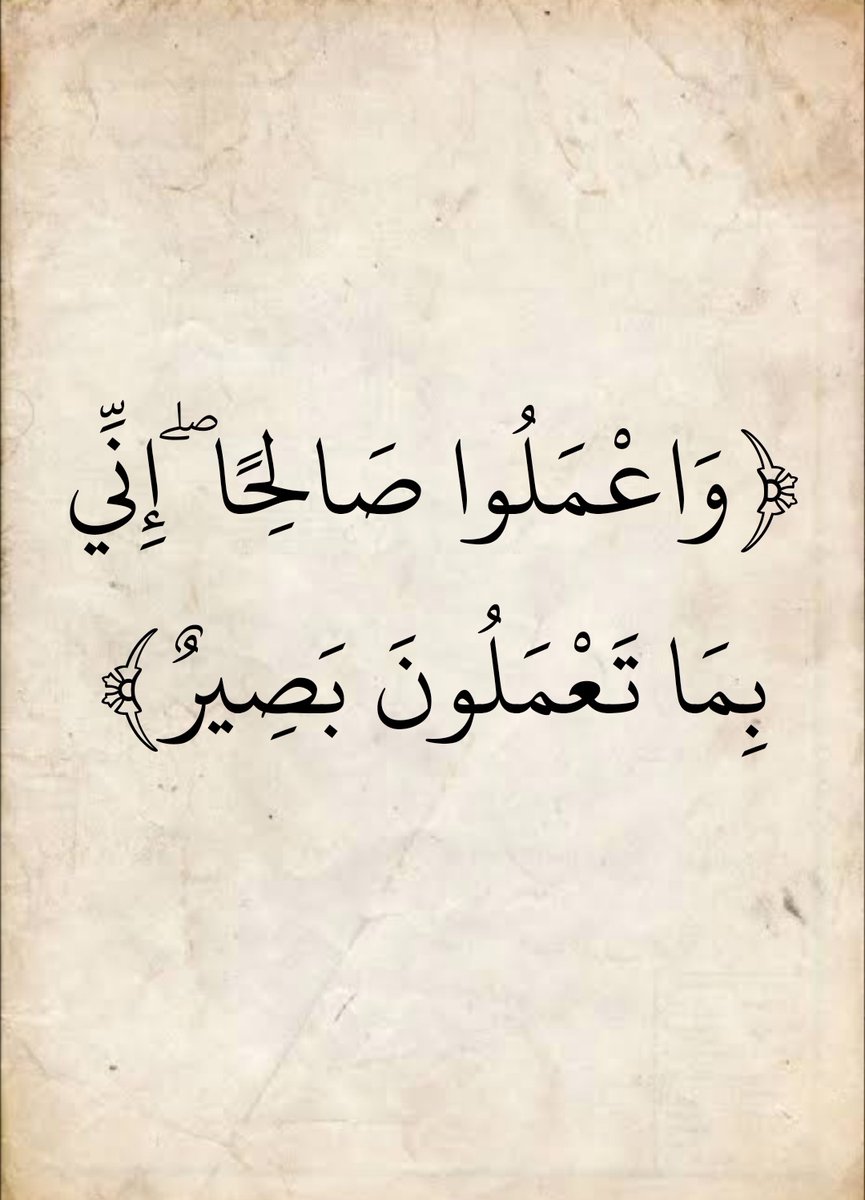 ﴿وَاعْمَلُوا صَالِحًا ۖ إِنِّي
بِمَا تَعْمَلُونَ بَصِيرٌ﴾